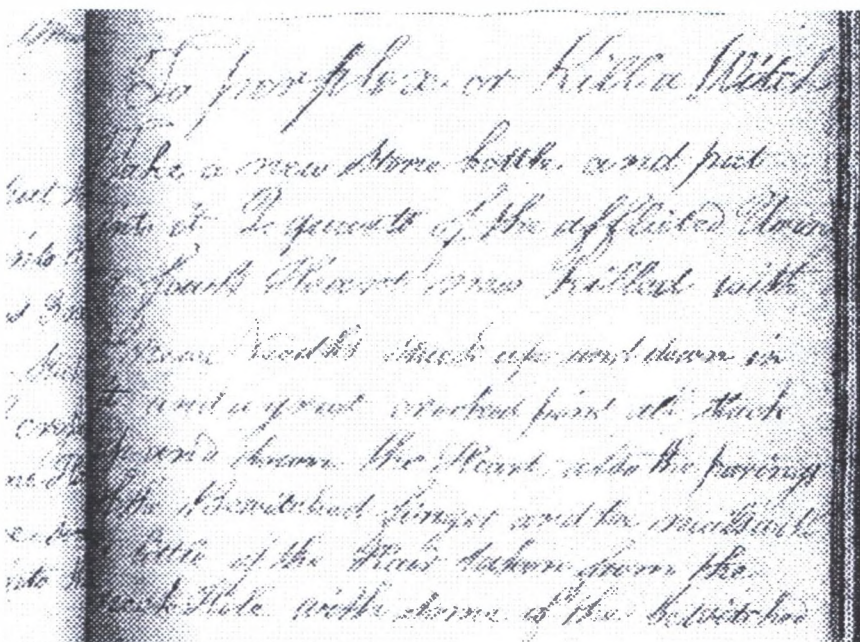 To perplex or Kill a Witch
Take a new Stone bottle and put
into it 2 quarts of the afflicted Urin
a fowls Heart new killed with
some Needles stuck up and down in
it and a great crooked pins all stuck
up and down the Heart also the parings
of the Bewitched finger and toe nails
little of the Hair taken from the
neck Hole with some of the bewitched